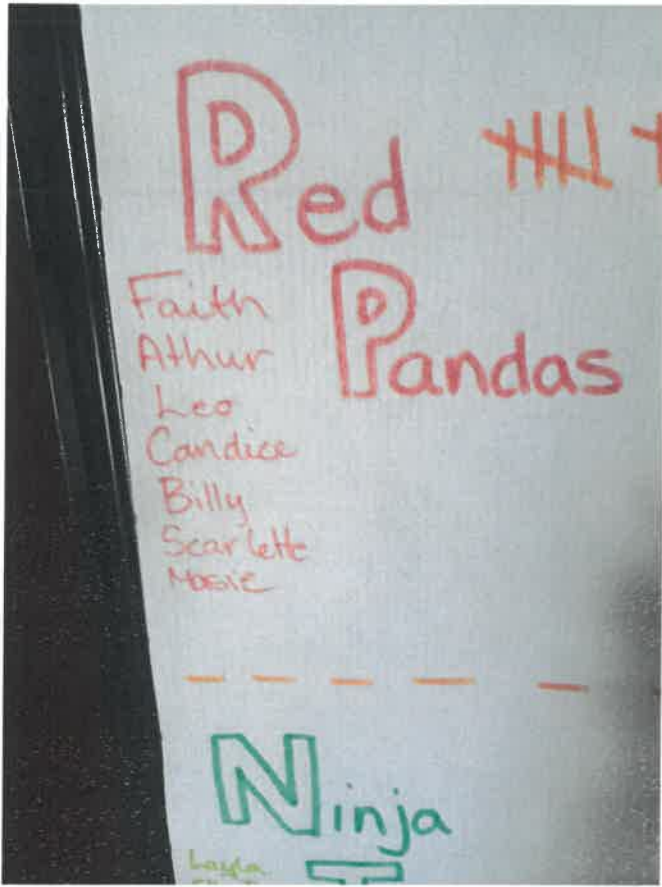 Red
Pandas
Faith
Athur
Leo
Candice
Billy
Scarlette
Ninja
Layla